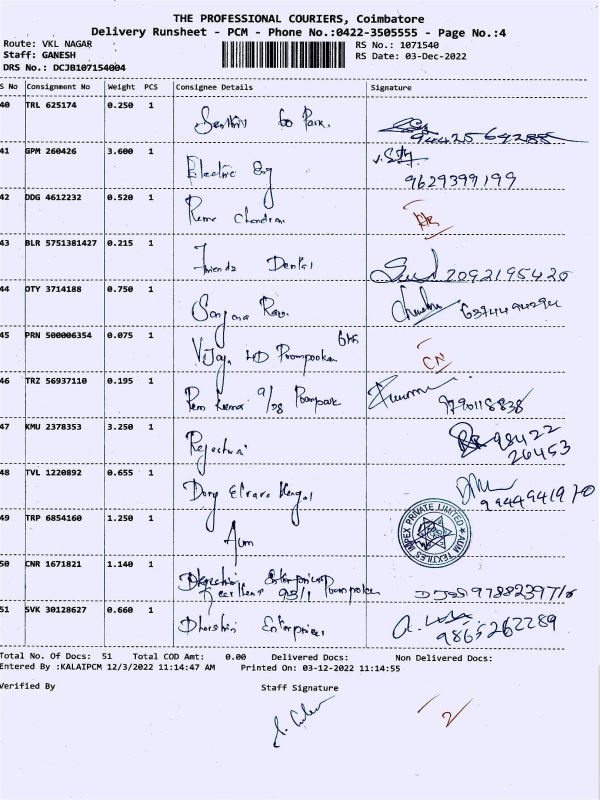 THE PROFESSIONAL COURIERS, Coimbatore
Delivery Runsheet - PCM - Phone No.:0422-3505555 - Page No.:4
Route: VKL NAGAR RS No.: 1071540
Staff: GANESH RS Date: 03-Dec-2022
DRS No.: DCJB107154004
S No Consignment No Weight PCS Consignee Details Signature
40 TRL 625174 0.250 1
Park.
41 GPM 260426 3.600 1
Electric Eng
9629399199
42 DDG 4612232 0.520 1
Rame Chandran
43 BLR 5751381427 0.215 1
Friends Dental
2092195420
44 OTY 3714188 0.750 1
Sanjana
45 PRN 500006354 0.075 1
Vijay
CN
46 TRZ 56937110 0.195 1
Prem Kumar 9/28
9790118838
47 KMU 2378353 3.250 1
98422
26453
48 TVL 1220892 0.655 1
9944941970
49 TRP 6854160 1.250 1
Aum
AUM TEXTILES IMPEX PRIVATE LIMITED
50 CNR 1671821 1.140 1
Enterprises
51 SVK 30128627 0.660 1
Dharshini Enterprises
9865262289
Total No. Of Docs: 51 Total COD Amt: 0.00 Delivered Docs: Non Delivered Docs:
Entered By :KALAIPCM 12/3/2022 11:14:47 AM Printed On: 03-12-2022 11:14:55
Verified By Staff Signature
2